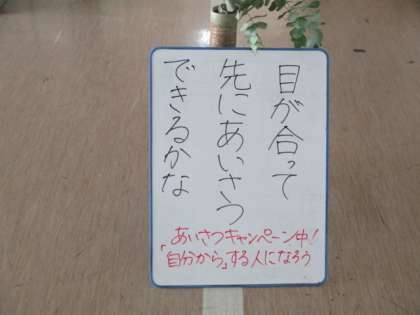 目が合って
先にあいさつ
できるかな
あいさつキャンペーン中!
「自分から」する人になろう